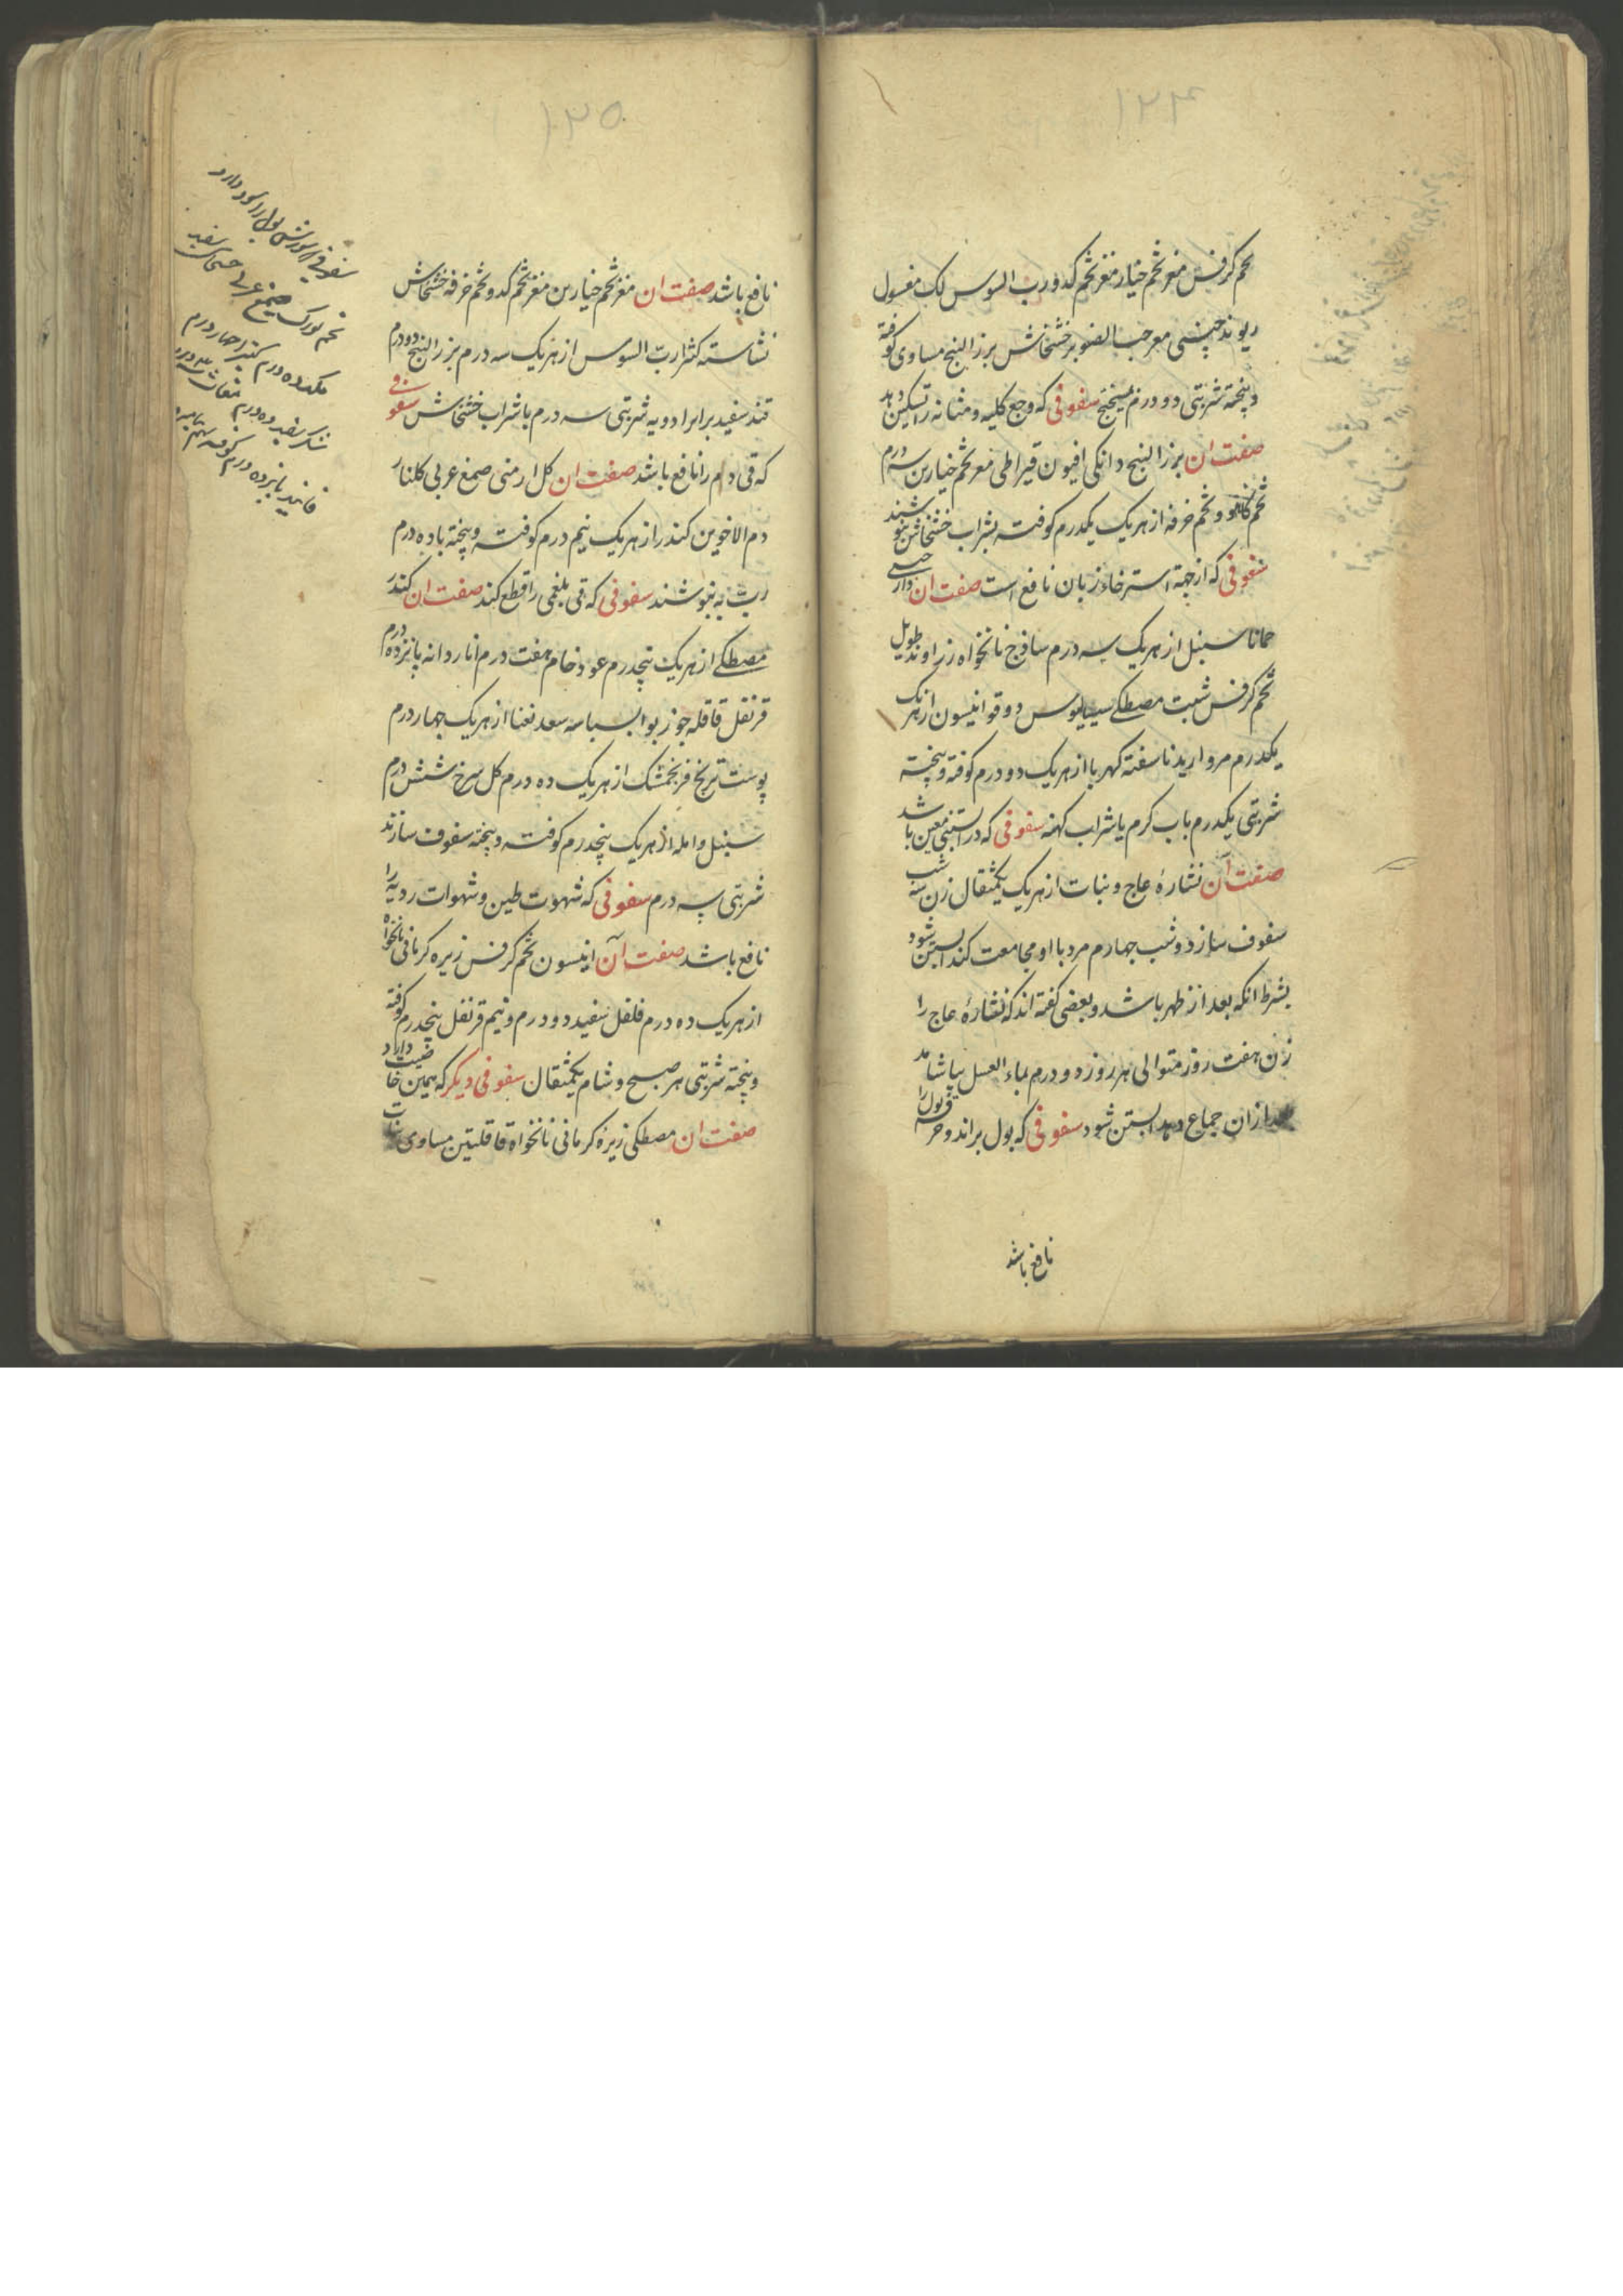 ۱۳۴
تخم کرفس مغز تخم خیار مغز تخم کدو رب السوس لک مغسول
ریوند چینی مغز حب الصنوبر خشخاش بزر البنج مساوی کوفته
و پخته شربتی دو درم میبختج سفوفی که وجع کلیه و مثانه را تسکین دهد
صفت ان بزر البنج دانکی افیون قیراطی مغز تخم خیارین سه درم
تخم کاهو و تخم خرفه از هر یک یکدرم کوفته بشراب خشخاش بنوشند
سفوفی که از جهة استرخاء زبان نافع است صفت ان دارچینی
حماما سنبل از هر یک سه درم ساذج نانخواه زراوند طویل
تخم کرفس شبت مصطکی سیسالیوس دوقو انیسون از هر یک
یکدرم مروارید ناسفته کهربا از هر یک دو درم کوفته و پخته
شربتی یکدرم باب کرم یا شراب کهنه سفوفی که در ابستنی معین باشد
صفت آن نشارۀ عاج و نبات از هر یک یکمثقال زن سه شب
سفوف سازد و شب چهارم مرد با او مجامعت کند ابستن شود
بشرط انکه بعد از طهر باشد و بعضی کفته اند که نشارۀ عاج را
زن هفت روز متوالی هر روز دو درم بماء العسل بیاشامد
بعد ازان جماع دهد ابستن شود سفوفی که بول براند و حرقة بول را
نافع باشد
۱۳۵
نافع باشد صفت ان مغز تخم خیارین مغز تخم کدو تخم خرفه خشخاش
نشاسته کثیرا ربّ السوس از هر یک سه درم بزر البنج دو درم
قند سفید برابر ادویه شربتی سه درم با شراب خشخاش سفوفی
که قی دم را نافع باشد صفت ان کل ارمنی صمغ عربی کلنار
دم الاخوین کندر از هر یک نیم درم کوفته و پخته با ده درم
ربّ به بنوشند سفوفی که قی بلغمی را قطع کند صفت ان کندر
مصطکی از هر یک پنجدرم عود خام هفت درم انار دانه پانزده درم
قرنفل قاقله جوز بوا بسباسه سعد نعنا از هر یک چهار درم
پوست ترنج فرنجمشک از هر یک ده درم کل سرخ شش درم
سنبل و امله از هر یک پنجدرم کوفته و پخته سفوف سازند
شربتی سه درم سفوفی که شهوت طین و شهوات ردیه را
نافع باشد صفت آن انیسون تخم کرفس زیره کرمانی نانخواه
از هر یک ده درم فلفل سفید دو درم و نیم قرنفل پنجدرم کوفته
و پخته شربتی هر صبح و شام یکمثقال سفوفی دیکر که همین خاصیت دارد
صفت ان مصطکی زیرۀ کرمانی نانخواه قاقلتین مساوی نبات
سفوفی که سوزش بول را سود دارد
تخم صمغ عربی خشخاش سفید
ده درم کتیرا چهار درم
شکر سفید ده درم
فانید پانزده درم کوفته